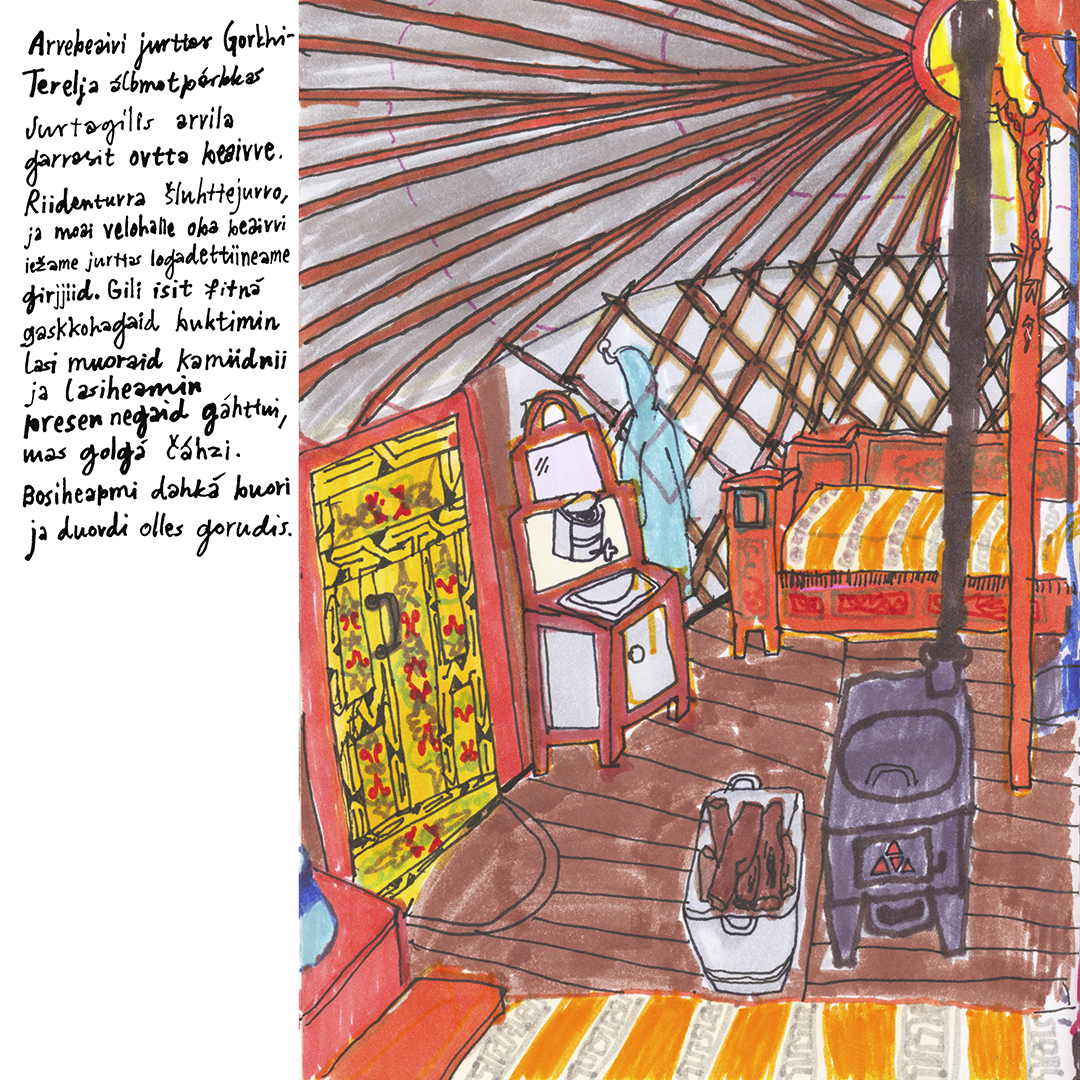 Arvebeaivi jurttas Gorkhi-
Terelja álbmotpárkkas
Jurtagilis arvila
garrasit ovtta beaivve.
Riidenturra šluhttejurro,
ja moai velohalle oba beaivvi
iežame jurttas logadettiineame
girjjiid. Gili isit fitná
gaskkohagaid buktimin
lasi muoraid kamiidnii
ja lasiheamin
presennegaid gáhttui,
mas golgá čáhzi.
Bosiheapmi dahká buori
ja duovdi olles gorudis.